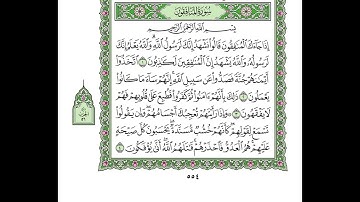 سورة المنافقون
بسم الله الرحمن الرحيم
إِذَا جَاءَكَ الْمُنَافِقُونَ قَالُوا نَشْهَدُ إِنَّكَ لَرَسُولُ اللَّهِ وَاللَّهُ يَعْلَمُ إِنَّكَ
لَرَسُولُهُ وَاللَّهُ يَشْهَدُ إِنَّ الْمُنَافِقِينَ لَكَاذِبُونَ ١ اتَّخَذُوا
أَيْمَانَهُمْ جُنَّةً فَصَدُّوا عَن سَبِيلِ اللَّهِ إِنَّهُمْ سَاءَ مَا كَانُوا
يَعْمَلُونَ ٢ ذَلِكَ بِأَنَّهُمْ آمَنُوا ثُمَّ كَفَرُوا فَطُبِعَ عَلَى قُلُوبِهِمْ فَهُمْ
لَا يَفْقَهُونَ ٣ وَإِذَا رَأَيْتَهُمْ تُعْجِبُكَ أَجْسَامُهُمْ وَإِن يَقُولُوا
تَسْمَعْ لِقَوْلِهِمْ كَأَنَّهُمْ خُشُبٌ مُّسَنَّدَةٌ يَحْسَبُونَ كُلَّ صَيْحَةٍ
عَلَيْهِمْ هُمُ الْعَدُوُّ فَاحْذَرْهُمْ قَاتَلَهُمُ اللَّهُ أَنَّى يُؤْفَكُونَ ٤
٥٥٤